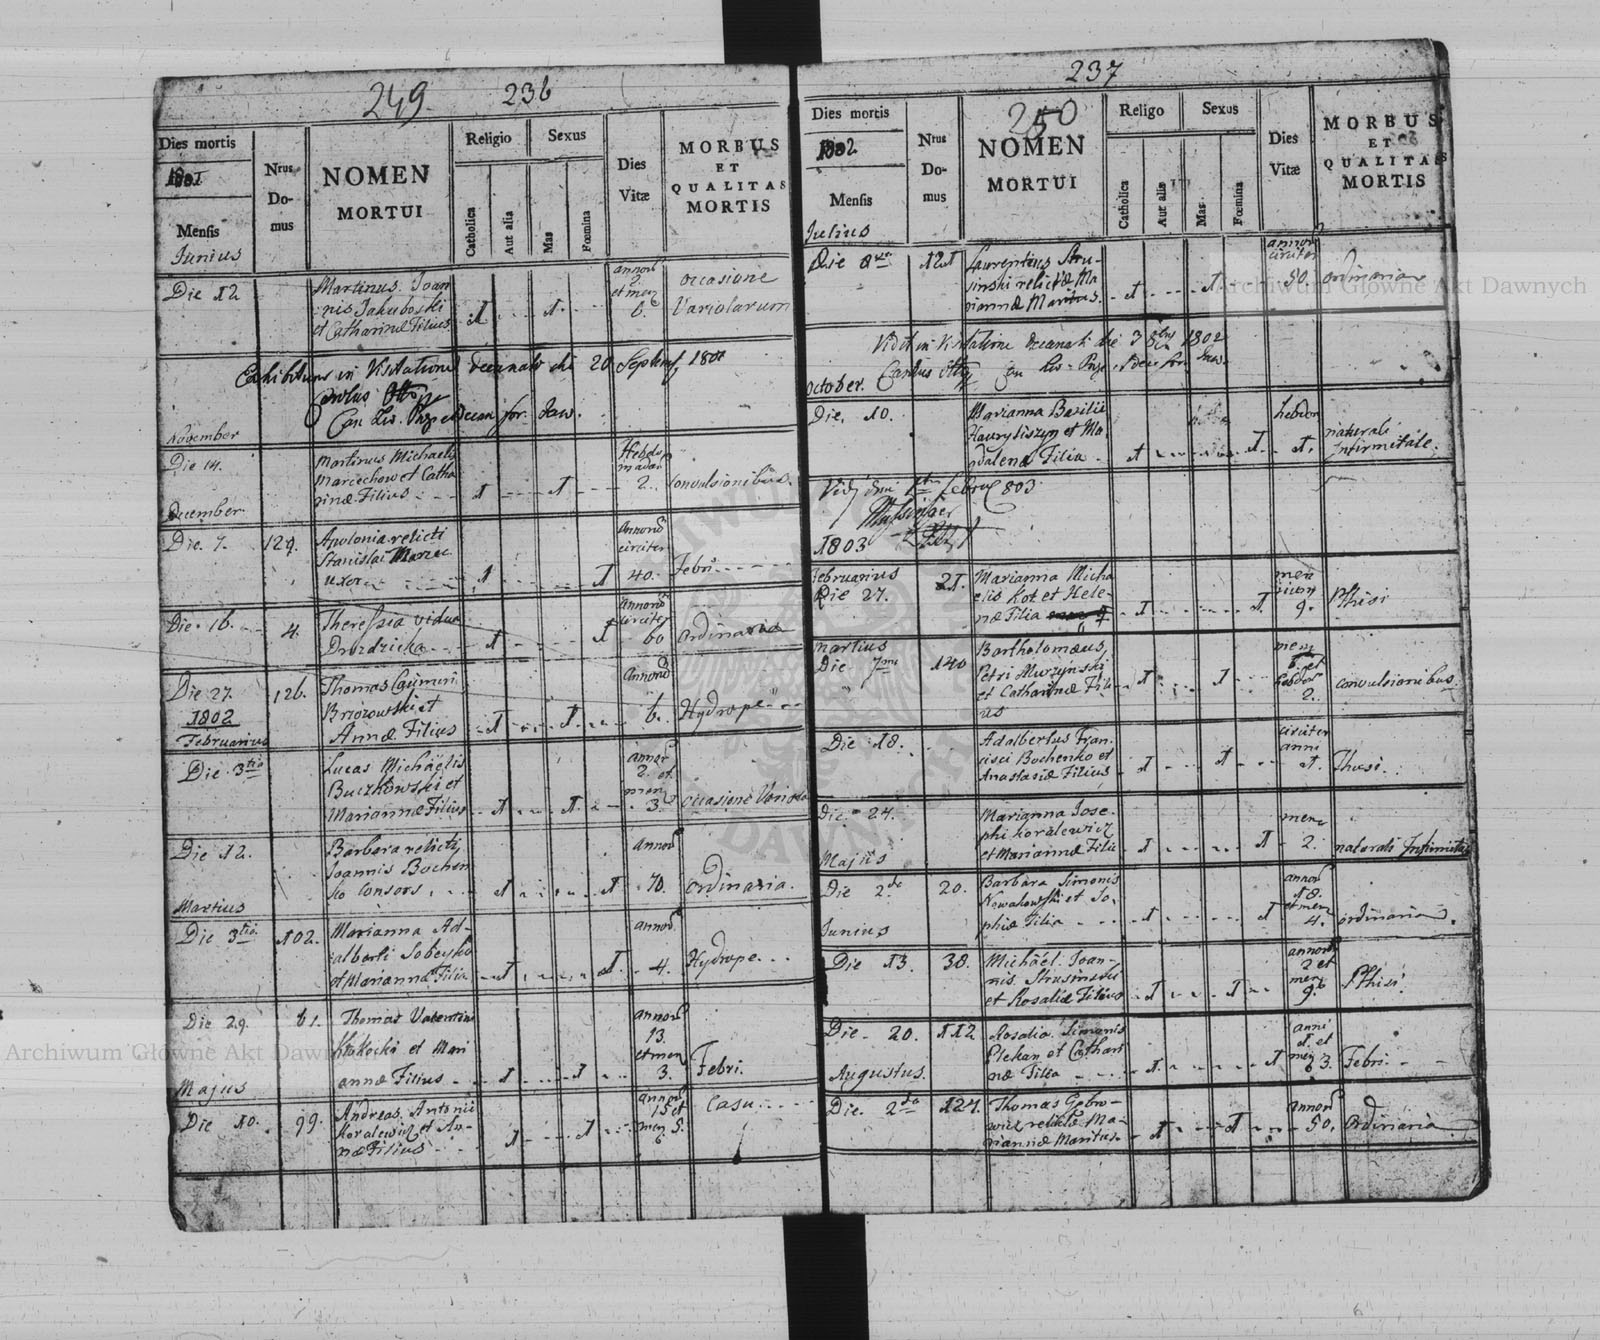 249. 236
Dies mortis
1801
Mensis
Nrus Do-
mus
NOMEN
MORTUI
Religio
Catholica
Aut alia
Sexus
Mas
Fœmina
Dies
Vitæ
MORBUS
ET
QUALITAS
MORTIS
Junius
Die 12
Martinus Joan
nis Jakuboski
et Catharinæ Filius
1
1
annor
2
et men
6.
occasione
Variolarum
Exhibitum in Visitatione decanali die 20 Septem 1801
Carolus Otto
November
Die 14.
Martinus Michaelis
Marcechow et Catha
rinæ Filius
1
1
Hebdo
madar
2.
Convulsionibus.
December
Die 7.
129.
Apolonia relicti
Stanislai Marzec
uxor
1
1
Annorū
circiter
40.
Febri
Die 16.
4.
Theressia vidua
Drozdzicka
1
1
annorū
circiter
60
Ordinaria
Die 27.
126.
Thomas Casimiri
Brzozowski et
Annæ Filius
1
1
Annorū
6.
Hydrope
1802
Februarius
Die 3tio
Lucas Michaëlis
Buczkowski et
Mariannæ Filius
1
1
annor
2. et
men
3.
occasione Variola
Die 12.
Barbara relicti
Joannis Bochen
ko Consors
1
1
annor
70.
Ordinaria.
Martius
Die 3tio
102.
Marianna Ad-
alberti Sobeyko
et Mariannæ Filia
1
1
annor
4.
Hydrope
Die 29.
61.
Thomas Valentini
Klokocki et Mari
annæ Filius
1
1
annor
13.
et men
3.
Febri.
Majus
Die 10.
99.
Andreas Antonii
Koralewicz et An-
næ Filius
1
1
annor
15 et
men 5.
Casu
237
250
Dies mortis
1802
Mensis
Nrus
Do-
mus
NOMEN
MORTUI
Religo
Catholica
Aut alis
Sexus
Mas
Fœmina
Dies
Vitæ
MORBUS
ET
QUALITAS
MORTIS
Julius
Die 8va
121
Laurentius Stru-
sinski relictæ Ma
riannæ Maritus.
1
1
annor
circiter
50
ordinaria
Vidit in Visitatione decanali die 3 8bris 1802
October.
Die 10.
Marianna Basilii
Hawryliszyn et Ma-
dalenæ Filia
1
1
hebdom
1.
naturali
Infirmitate.
1803
Februarius
Die 27.
21.
Marianna Micha
elis Kot et Hele-
næ Filia
1
1
men
sium
9.
Phisi
Martius
Die 7ma
140
Bartholomæus
Petri Murzynski
et Catharinæ Fili
us
1
1
men
6. et
hebdom
2.
convulsionibus
Die 18.
Adalbertus Fran-
cisci Bochenko et
Anastasiæ Filius
1
1
circiter
anni
1.
Thusi.
Die 24.
Marianna Jose-
phi Koralewicz
et Mariannæ Filia
1
1
men
2.
naturali Infirmitate
Majus
Die 2da
20.
Barbara Simonis
Nowakowski et So-
phiæ Filia
1
1
annor
18.
et men
4.
ordinaria.
Junius
Die 13.
38.
Michaël Joan-
nis Strusinski
et Rosaliæ Filius
1
1
annor
2 et
men
9.
Phisi.
Die 20.
112
Rosalia Simonis
Plekan et Cathari
næ Filia
1
1
anni
1. et
men
3.
Febri.
Augustus.
Die 2da
127.
Thomas Gebro-
wicz relictæ Ma-
riannæ Maritus.
1
1
annor
50.
Ordinaria
Archiwum Główne Akt Dawnych
Archiwum Główne Akt Dawnych